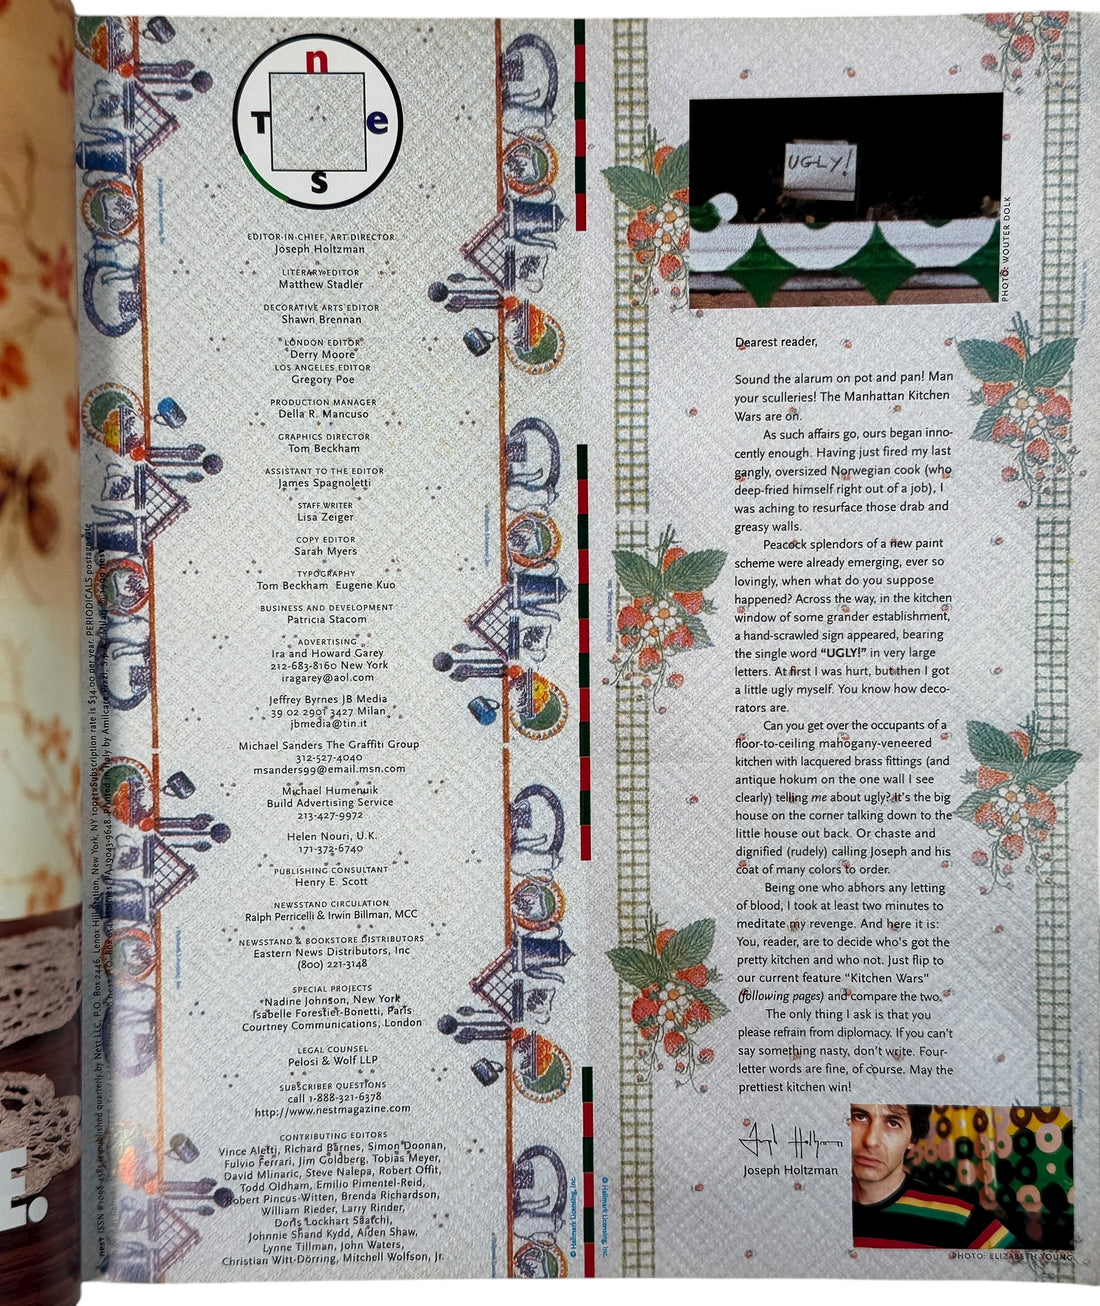 n
T e
s
EDITOR-IN-CHIEF, ART DIRECTOR
Joseph Holtzman
LITERARY EDITOR
Matthew Stadler
DECORATIVE ARTS EDITOR
Shawn Brennan
LONDON EDITOR
Derry Moore
LOS ANGELES EDITOR
Gregory Poe
PRODUCTION MANAGER
Della R. Mancuso
GRAPHICS DIRECTOR
Tom Beckham
ASSISTANT TO THE EDITOR
James Spagnoletti
STAFF WRITER
Lisa Zeiger
COPY EDITOR
Sarah Myers
TYPOGRAPHY
Tom Beckham Eugene Kuo
BUSINESS AND DEVELOPMENT
Patricia Stacom
ADVERTISING
Ira and Howard Garey
212-683-8160 New York
iragarey@aol.com
Jeffrey Byrnes JB Media
39 02 2901 3427 Milan
jbmedia@tin.it
Michael Sanders The Graffiti Group
312-527-4040
msanders99@email.msn.com
Michael Humenuik
Build Advertising Service
213-427-9972
Helen Nouri, U.K.
171-372-6740
PUBLISHING CONSULTANT
Henry E. Scott
NEWSSTAND CIRCULATION
Ralph Perricelli & Irwin Billman, MCC
NEWSSTAND & BOOKSTORE DISTRIBUTORS
Eastern News Distributors, Inc
(800) 221-3148
SPECIAL PROJECTS
Nadine Johnson, New York
Isabelle Forestier-Bonetti, Paris
Courtney Communications, London
LEGAL COUNSEL
Pelosi & Wolf LLP
SUBSCRIBER QUESTIONS
call 1-888-321-6378
http://www.nestmagazine.com
CONTRIBUTING EDITORS
Vince Aletti, Richard Barnes, Simon Doonan,
Fulvio Ferrari, Jim Goldberg, Tobias Meyer,
David Mlinaric, Steve Nalepa, Robert Offit,
Todd Oldham, Emilio Pimentel-Reid,
Robert Pincus-Witten, Brenda Richardson,
William Rieder, Larry Rinder,
Doris Lockhart Saatchi,
Johnnie Shand Kydd, Aiden Shaw,
Lynne Tillman, John Waters,
Christian Witt-Dörring, Mitchell Wolfson, Jr.
published quarterly by Nest LLC, P.O. Box 2446, Lenox Hill Station, New York, NY 10021. Subscription rate is $34.00 per year. PERIODICALS postage rate
© Hallmark Licensing, Inc.
© Hallmark Licensing, Inc.
UGLY!
PHOTO: WOUTER DOLK
Dearest reader,
Sound the alarum on pot and pan! Man
your sculleries! The Manhattan Kitchen
Wars are on.
As such affairs go, ours began inno-
cently enough. Having just fired my last
gangly, oversized Norwegian cook (who
deep-fried himself right out of a job), I
was aching to resurface those drab and
greasy walls.
Peacock splendors of a new paint
scheme were already emerging, ever so
lovingly, when what do you suppose
happened? Across the way, in the kitchen
window of some grander establishment,
a hand-scrawled sign appeared, bearing
the single word “UGLY!” in very large
letters. At first I was hurt, but then I got
a little ugly myself. You know how deco-
rators are.
Can you get over the occupants of a
floor-to-ceiling mahogany-veneered
kitchen with lacquered brass fittings (and
antique hokum on the one wall I see
clearly) telling me about ugly? It's the big
house on the corner talking down to the
little house out back. Or chaste and
dignified (rudely) calling Joseph and his
coat of many colors to order.
Being one who abhors any letting
of blood, I took at least two minutes to
meditate my revenge. And here it is:
You, reader, are to decide who's got the
pretty kitchen and who not. Just flip to
our current feature “Kitchen Wars”
(following pages) and compare the two.
The only thing I ask is that you
please refrain from diplomacy. If you can't
say something nasty, don't write. Four-
letter words are fine, of course. May the
prettiest kitchen win!
Joseph Holtzman
PHOTO: ELIZABETH YOUNG
E.